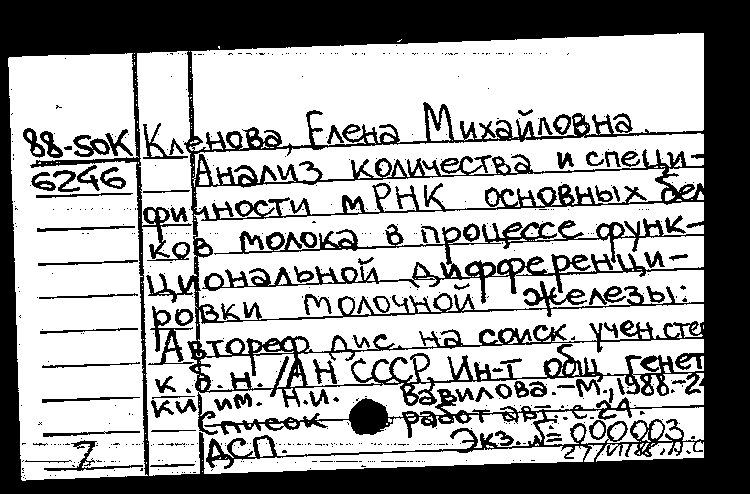 88-50К Кленова, Елена Михайловна.
6246 Анализ количества и специ-
фичности мРНК основных бел
ков молока в процессе функ-
циональной дифференци-
ровки молочной железы:
Автореф. дис. на соиск. учен. степ
к.б.н. /АН СССР, Ин-т общ. генет
ки им. Н.И. Вавилова. - М., 1988. - 24
Список работ авт.: с. 24.
ДСП. Экз. № 000003.
7